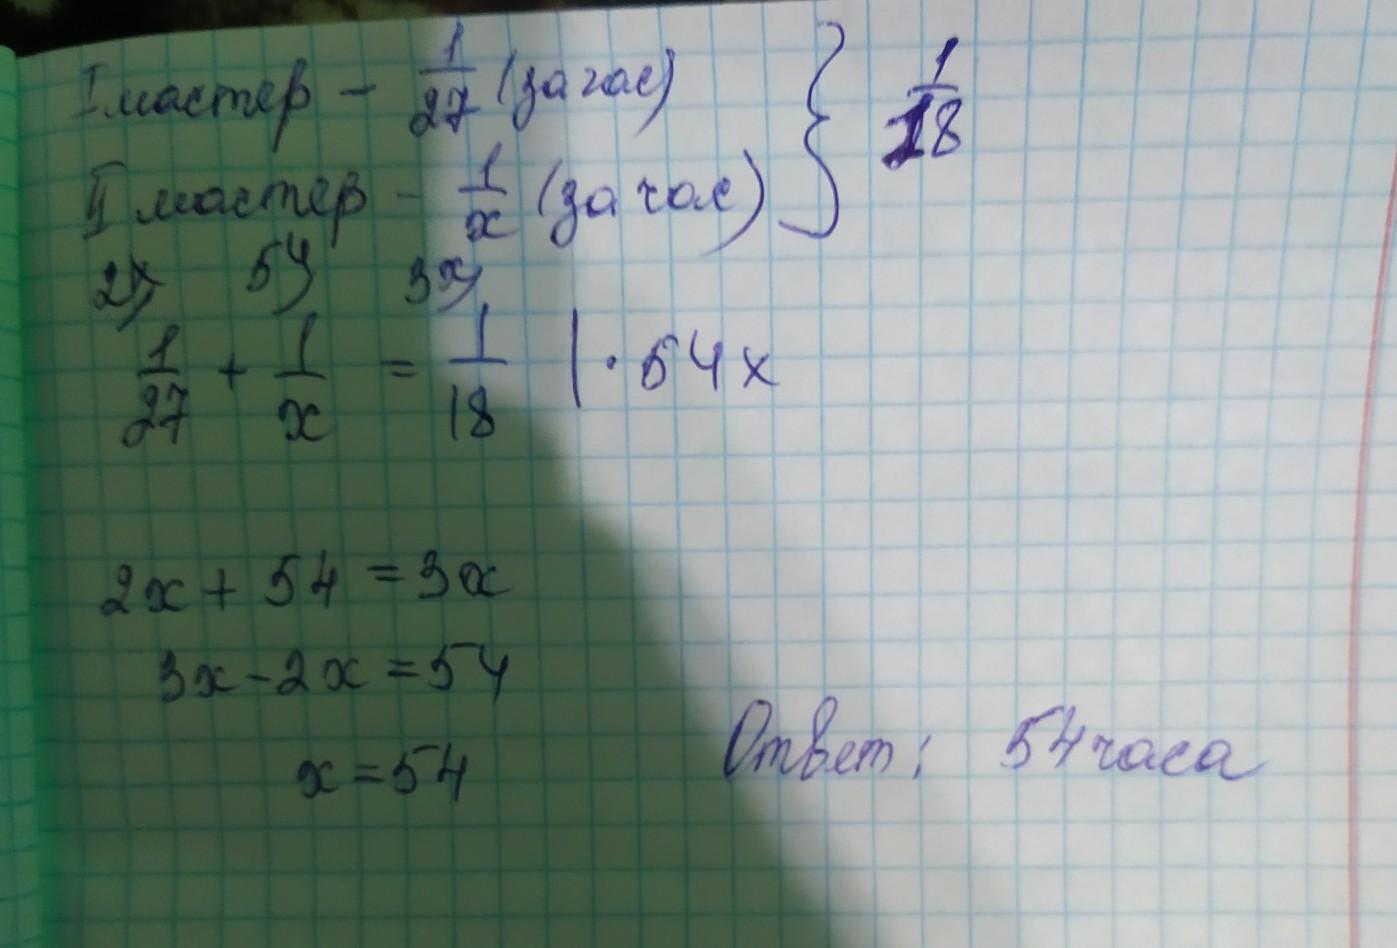 I мастер - 1/27 (за час) } 1/18
II мастер - 1/x (за час)
2x) 54) 3x)
1/27 + 1/x = 1/18 | · 54x
2x + 54 = 3x
3x - 2x = 54
x = 54
Ответ: 54 часа